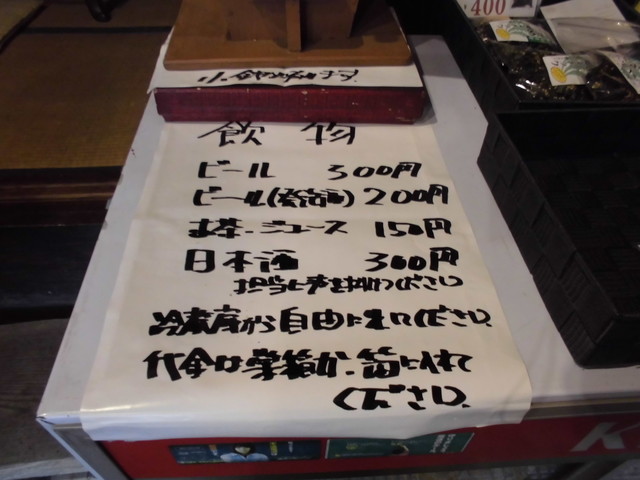 ¥400
飲物
ビール 300円
ビール(発泡酒)200円
お茶・ジュース 150円
日本酒 300円
担当に声を掛けてください
冷蔵庫から自由に取ってください。
代金は
に入れて
ください。
K